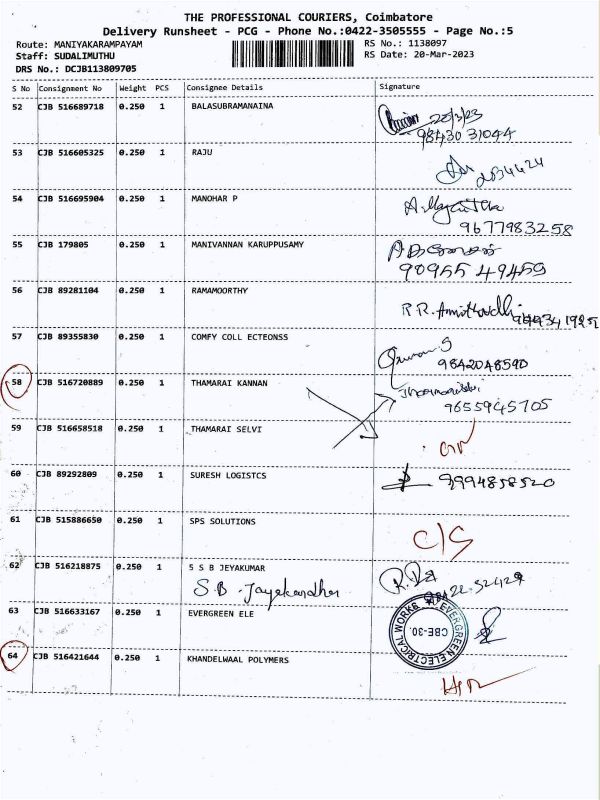 THE PROFESSIONAL COURIERS, Coimbatore
Delivery Runsheet - PCG - Phone No.:0422-3505555 - Page No.:5
Route: MANIYAKARAMPAYAM RS No.: 1138097
Staff: SUDALIMUTHU RS Date: 20-Mar-2023
DRS No.: DCJB113809705
S No Consignment No Weight PCS Consignee Details Signature
52 CJB 516689718 0.250 1 BALASUBRAMANAINA
98430 31044
53 CJB 516605325 0.250 1 RAJU
2634424
54 CJB 516695904 0.250 1 MANOHAR P
9677983258
55 CJB 179805 0.250 1 MANIVANNAN KARUPPUSAMY
90955 49459
56 CJB 89281104 0.250 1 RAMAMOORTHY
R.R.
57 CJB 89355830 0.250 1 COMFY COLL ECTEONSS
9842048590
58 CJB 516720889 0.250 1 THAMARAI KANNAN
9655945705
59 CJB 516658518 0.250 1 THAMARAI SELVI
60 CJB 89292809 0.250 1 SURESH LOGISTCS
9994858520
61 CJB 515886650 0.250 1 SPS SOLUTIONS
C/S
62 CJB 516218875 0.250 1 S S B JEYAKUMAR
S.B.
63 CJB 516633167 0.250 1 EVERGREEN ELE
EVERGREEN ELECTRICAL WORKS
CBE-30.
64 CJB 516421644 0.250 1 KHANDELWAAL POLYMERS